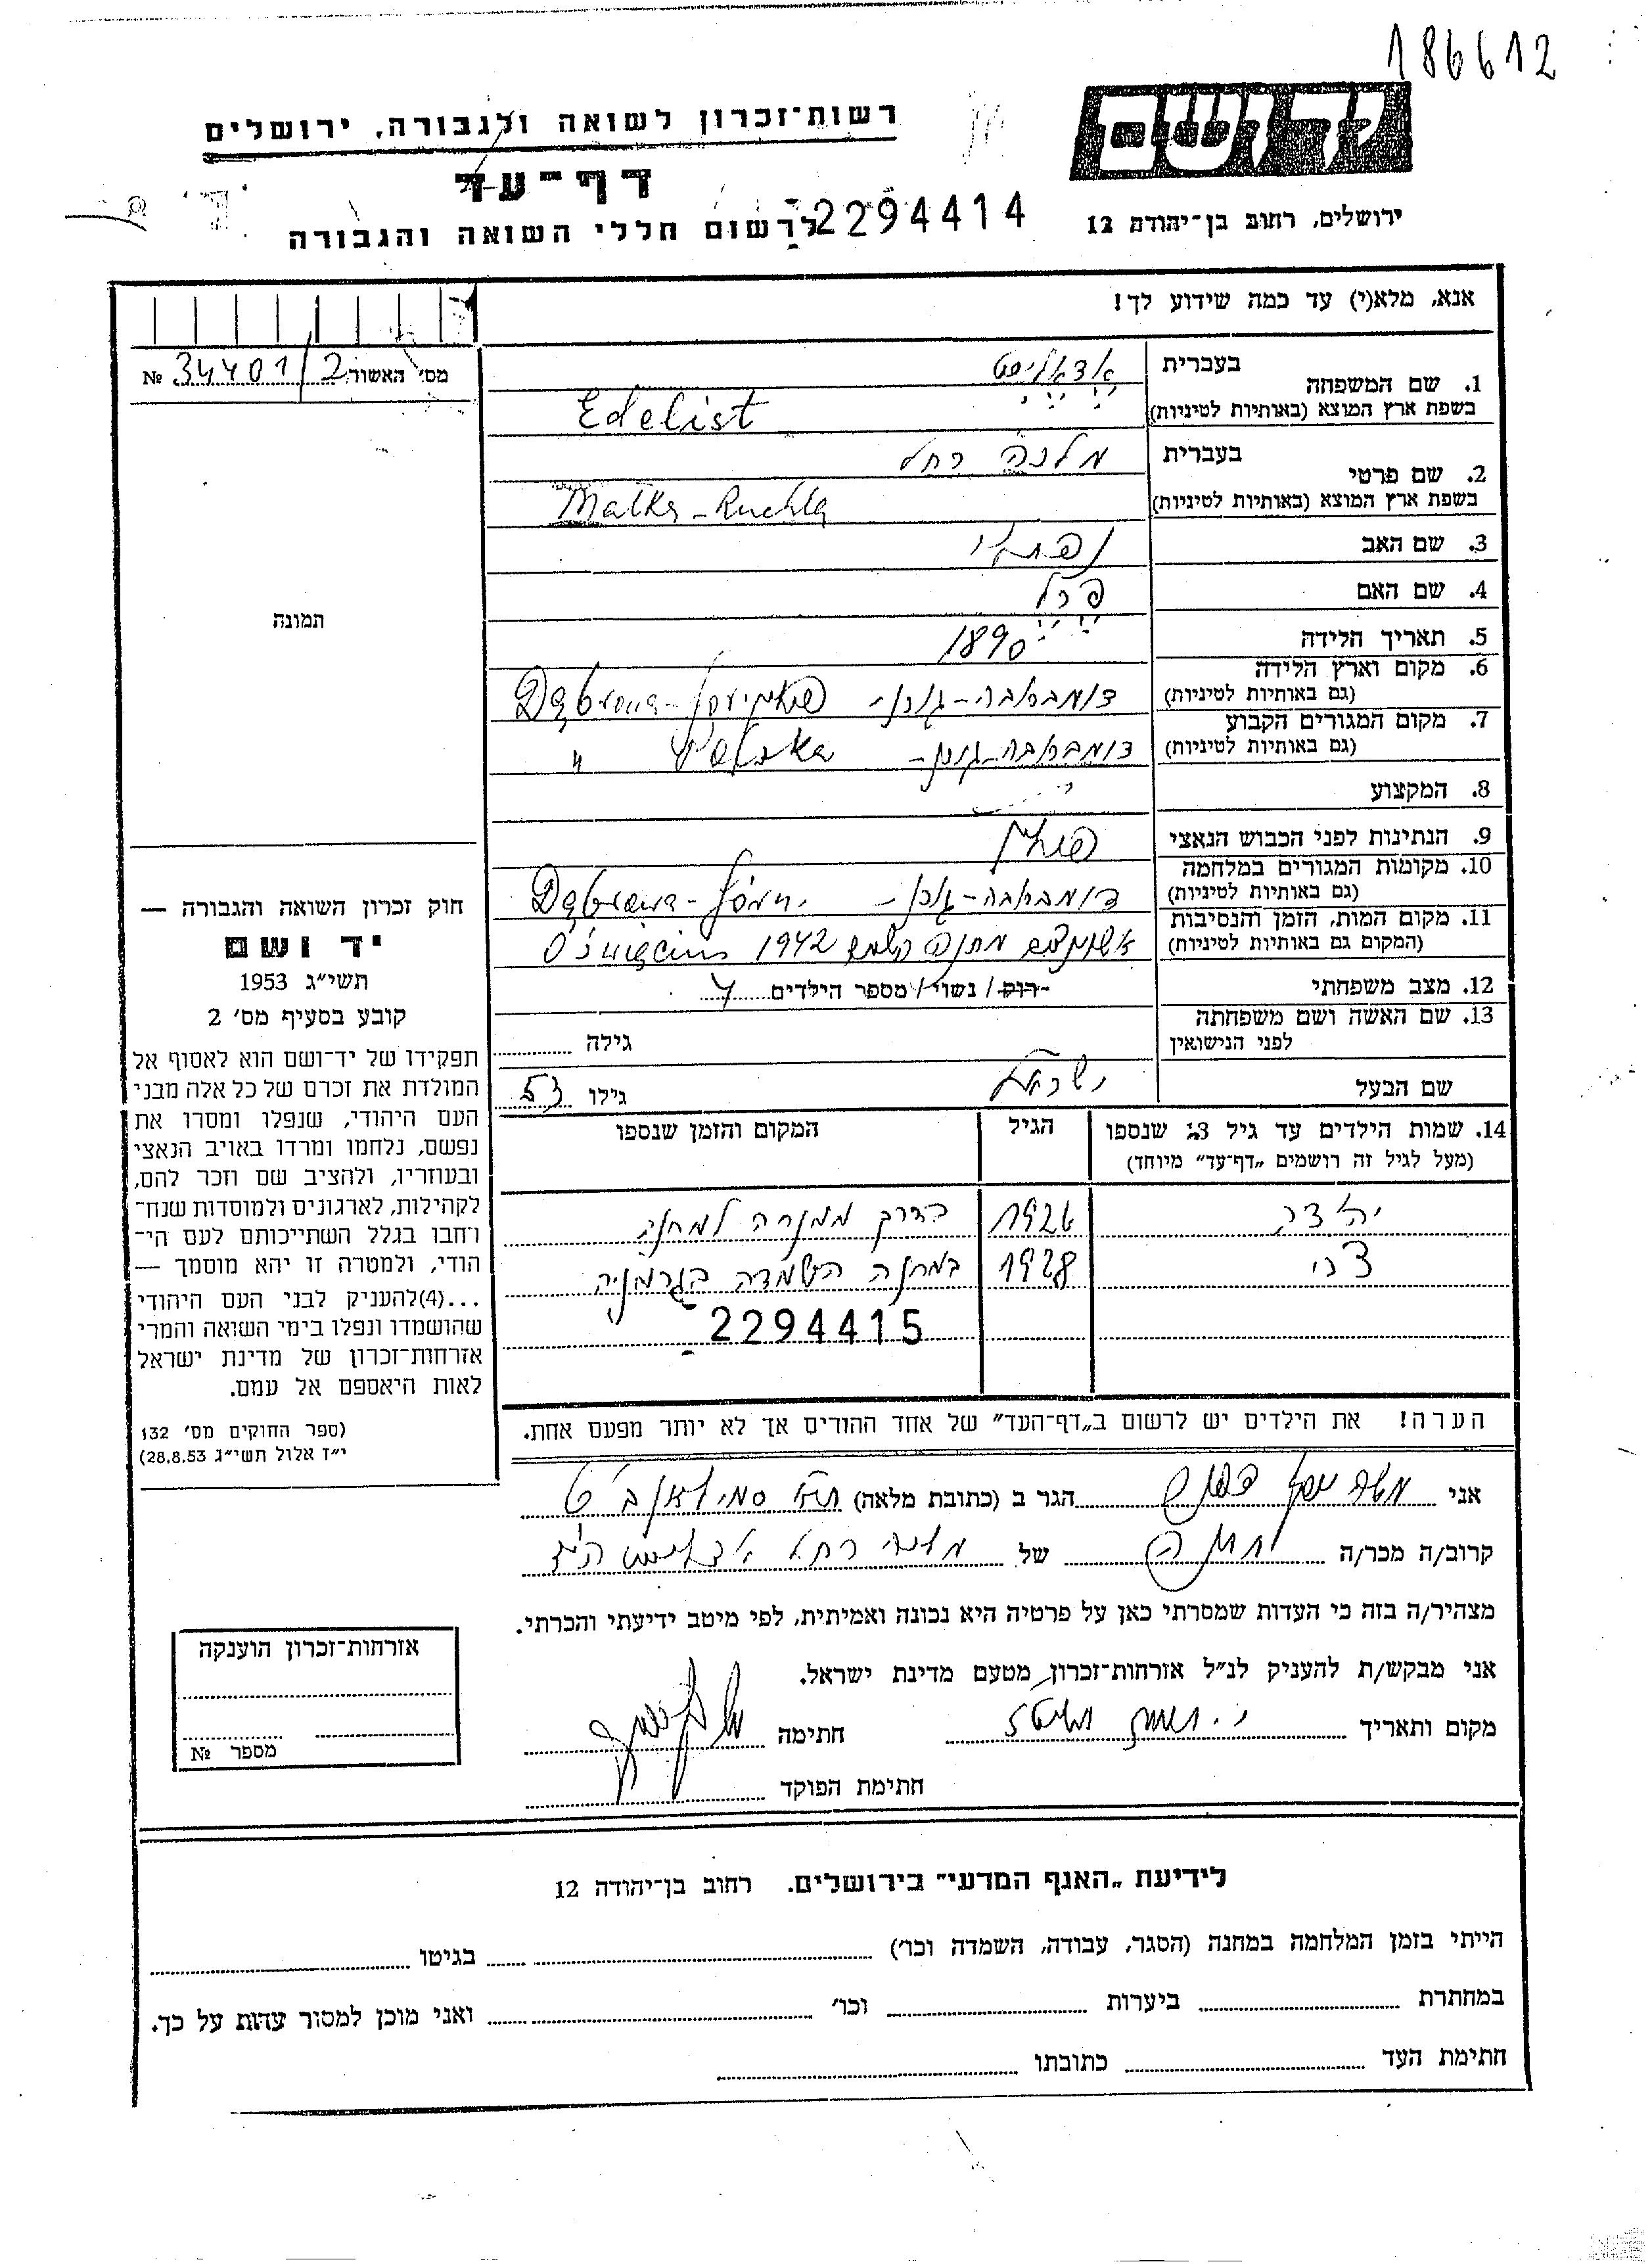 186612
יד ושם
רשות־זכרון לשואה ולגבורה, ירושלים
דף־עד
לרשום חללי השואה והגבורה
2294414
ירושלים, רחוב בן־יהודה 12
אנא, מלא(י) עד כמה שידוע לך!
מס׳ האשור 34401/2 №
1. שם המשפחה
בעברית
אדאליסט
בשפת ארץ המוצא (באותיות לטיניות)
Edelist
2. שם פרטי
בעברית
מלכה רחל
בשפת ארץ המוצא (באותיות לטיניות)
Malka-Ruchla
3. שם האב
נפתלי
4. שם האם
פרל
5. תאריך הלידה
1890
6. מקום וארץ הלידה
(גם באותיות לטיניות)
7. מקום המגורים הקבוע
(גם באותיות לטיניות)
Polska "
8. המקצוע
9. הנתינות לפני הכבוש הנאצי
10. מקומות המגורים במלחמה
(גם באותיות לטיניות)
11. מקום המות, הזמן והנסיבות
(המקום גם באותיות לטיניות)
1942 Oświęcim
12. מצב משפחתי
רוק / נשוי / מספר הילדים
13. שם האשה ושם משפחתה
לפני הנישואין
גילה
שם הבעל
ישראל
גילו 53
14. שמות הילדים עד גיל 18 שנספו
(מעל לגיל זה רושמים „דף־עד״ מיוחד)
הגיל
המקום והזמן שנספו
1926 בדרך ממנרה למחנה
צבי 1928 במחנה השמדה בגרמניה
2294415
הערה! את הילדים יש לרשום ב„דף־העד״ של אחד ההורים אך לא יותר מפעם אחת.
תמונה
חוק זכרון השואה והגבורה —
יד ושם
תשי״ג 1953
קובע בסעיף מס׳ 2
תפקידו של יד־ושם הוא לאסוף אל
המולדת את זכרם של כל אלה מבני
העם היהודי, שנפלו ומסרו את
נפשם, נלחמו ומרדו באויב הנאצי
ובעוזריו, ולהציב שם וזכר להם,
לקהילות, לארגונים ולמוסדות שנח־
רחבו בגלל השתייכותם לעם הי־
הודי, ולמטרה זו יהא מוסמך —
...(4)להעניק לבני העם היהודי
שהושמדו ונפלו בימי השואה והמרי
אזרחות־זכרון של מדינת ישראל
לאות היאספם אל עמם.
(ספר החוקים מס׳ 132
י״ז אלול תשי״ג 28.8.53)
אני
הגר ב (כתובת מלאה)
קרוב/ה מכר/ה
של מלכה רחל
מצהיר/ה בזה כי העדות שמסרתי כאן על פרטיה היא נכונה ואמיתית, לפי מיטב ידיעתי והכרתי.
אני מבקש/ת להעניק לנ״ל אזרחות־זכרון מטעם מדינת ישראל.
מקום ותאריך
חתימה
חתימת הפוקד
אזרחות־זכרון הוענקה
מספר №
לידיעת „האגף המדעי״ בירושלים. רחוב בן־יהודה 12
הייתי בזמן המלחמה במחנה (הסגר, עבודה, השמדה וכו׳) בגיטו
במחתרת ביערות וכו׳ ואני מוכן למסור עדות על כך.
חתימת העד כתובתו